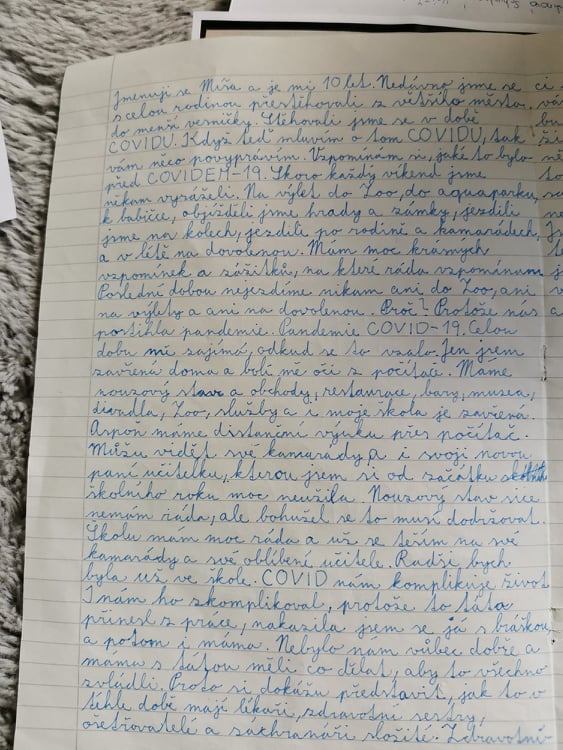 Jmenuji se Míša a je mi 10 let. Nedávno jsme se
s celou rodinou přestěhovali z většího města,
do menší vesničky. Stěhovali jsme se v době
COVIDU. Když teď mluvím o tom COVIDU, tak
vám něco povyprávím. Vzpomínám si, jaké to bylo
před COVIDEM-19. Skoro každý víkend jsme
někam vyráželi. Na výlet do Zoo, do aquaparku,
k babičce, objížděli jsme hrady a zámky, jezdili
jsme na kolech, jezdili po rodině a kamarádech,
a v létě na dovolenou. Mám moc krásných
vzpomínek a zážitků, na které ráda vzpomínám
Poslední dobou nejezdíme nikam ani do Zoo, ani
na výlety a ani na dovolenou. Proč? Protože nás
postihla pandemie. Pandemie COVID-19. Celou
dobu mě zajímá, odkud se to vzalo. Jen jsem
zavřená doma a bolí mě oči z počítače. Máme
nouzový stav a obchody, restaurace, bary, muzea,
divadla, Zoo, služby a i moje škola je zavřená.
Aspoň máme distanční výuku přes počítač.
Můžu vidět své kamarády a i svoji novou
paní učitelku, kterou jsem si od začátku
školního roku moc neužila. Nouzový stav sice
nemám ráda, ale bohužel se to musí dodržovat.
Školu mám moc ráda a už se těším na své
kamarády a své oblíbené učitele. Radši bych
byla už ve škole. COVID nám komplikuje život
I nám ho zkomplikoval, protože to táta
přinesl z práce, nakazila jsem se já s bráškou
a potom i máma. Nebylo nám vůbec dobře a
máma s tátou měli co dělat, aby to všechno
zvládli. Proto si dokážu představit, jak to v
téhle době mají lékaři, zdravotní sestry,
ošetřovatelé a záchranáři složité. Zdravotní-